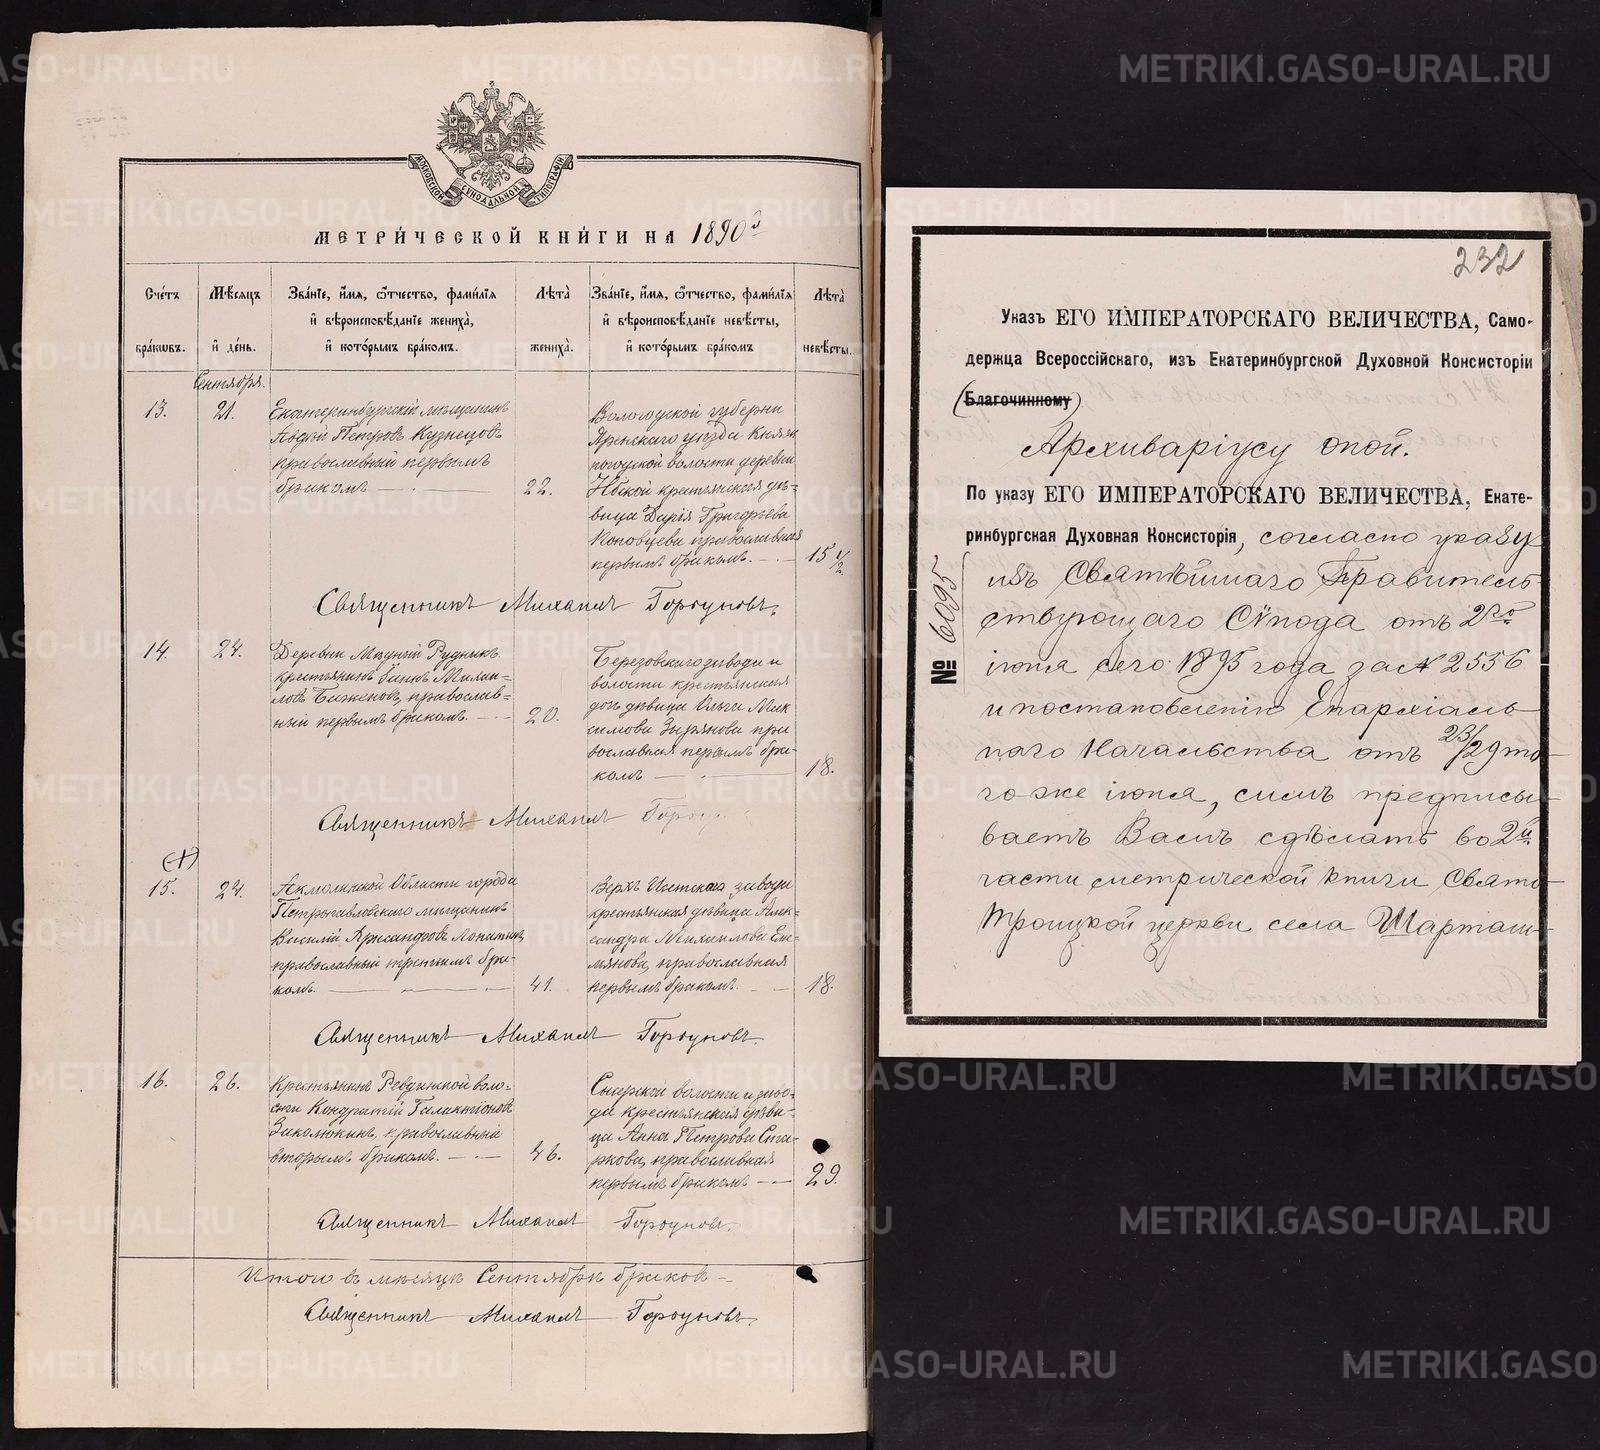 МОСКОВСКОЙ СѴНОДАЛЬНОЙ ТИПОГРАФІИ
МЕТРИ́ЧЕСКОЙ КНИ́ГИ НА 1890 й
Счётъ бра́кѡвъ.
Мѣ́сяцъ и҆ де́нь.
Зва́нїе, и҆́мя, ѻ҆́тчество, фами́лїя
и҆ вѣроисповѣ́данїе жениха̀,
и҆ кото́рымъ бра́комъ.
Лѣта̀ жениха̀.
Зва́нїе, и҆́мя, ѻ҆́тчество, фами́лїя
и҆ вѣроисповѣ́данїе невѣ́сты,
и҆ кото́рымъ бра́комъ
Лѣта̀ невѣ́сты.
Сентября.
13.
21.
Екатеринбургскій мѣщанинъ
Авдѣй Петровъ Кузнецовъ
православный первымъ
бракомъ
22.
Вологодской губерни
Яренскаго уѣзда Княж
погодской волости деревни
крестьянская дѣ-
вица Дарія Григорьева
Коновцева православная
первымъ бракомъ.
15 1/2.
Священникъ Михаилъ Горбуновъ.
14.
24.
Деревни Рудникъ
крестьянинъ Михаи-
ловъ Баженовъ, православ-
ный первымъ бракомъ.
20.
Березовскаго завода и
волости крестьянская
дочь дѣвица Ольга Мак
симова Зырянова пра
вославная первымъ бра-
комъ
18.
Священникъ Михаилъ
(+)
15.
24.
Акмолинской Области города
Петропавловскаго мѣщанинъ
Василій Хрисанфовъ Лопаткинъ,
православный третьимъ бра-
комъ.
41.
Верхъ Исетскаго завода
крестьянская дѣвица Алек-
сандра Михаилова Еме
льянова, православная
первымъ бракомъ.
18.
Священникъ Михаилъ Горбуновъ.
16.
26.
Крестьянинъ Ревдинской воло-
сти Кондратій Галактіоновъ
Заколюкинъ, православный
вторымъ бракомъ.
46.
Сысерской волости и заво-
да крестьянская дѣви-
ца Анна Петрова Ста-
ркова, православная
первымъ бракомъ
29.
Священникъ Михаилъ Горбуновъ.
Итого въ мѣсяцѣ Сентябрѣ браковъ
Священникъ Михаилъ Горбуновъ.
232
Указъ ЕГО ИМПЕРАТОРСКАГО ВЕЛИЧЕСТВА, Само-
держца Всероссійскаго, изъ Екатеринбургской Духовной Консисторіи
(Благочинному)
Архиваріусу оной.
По указу ЕГО ИМПЕРАТОРСКАГО ВЕЛИЧЕСТВА, Екате-
ринбургская Духовная Консисторія, согласно указу
изъ Святѣйшаго Правитель-
ствующаго Сѵнода отъ 2го
іюня сего 1895 года за № 2556
и постановленію Епархіаль-
наго Начальства отъ 23/29 то-
го же іюня, симъ предписы-
ваетъ Вамъ сдѣлать во 2й
части метрической книги Свято-
Троицкой церкви села Шарташ-
№ 6095
METRIKI.GASO-URAL.RU